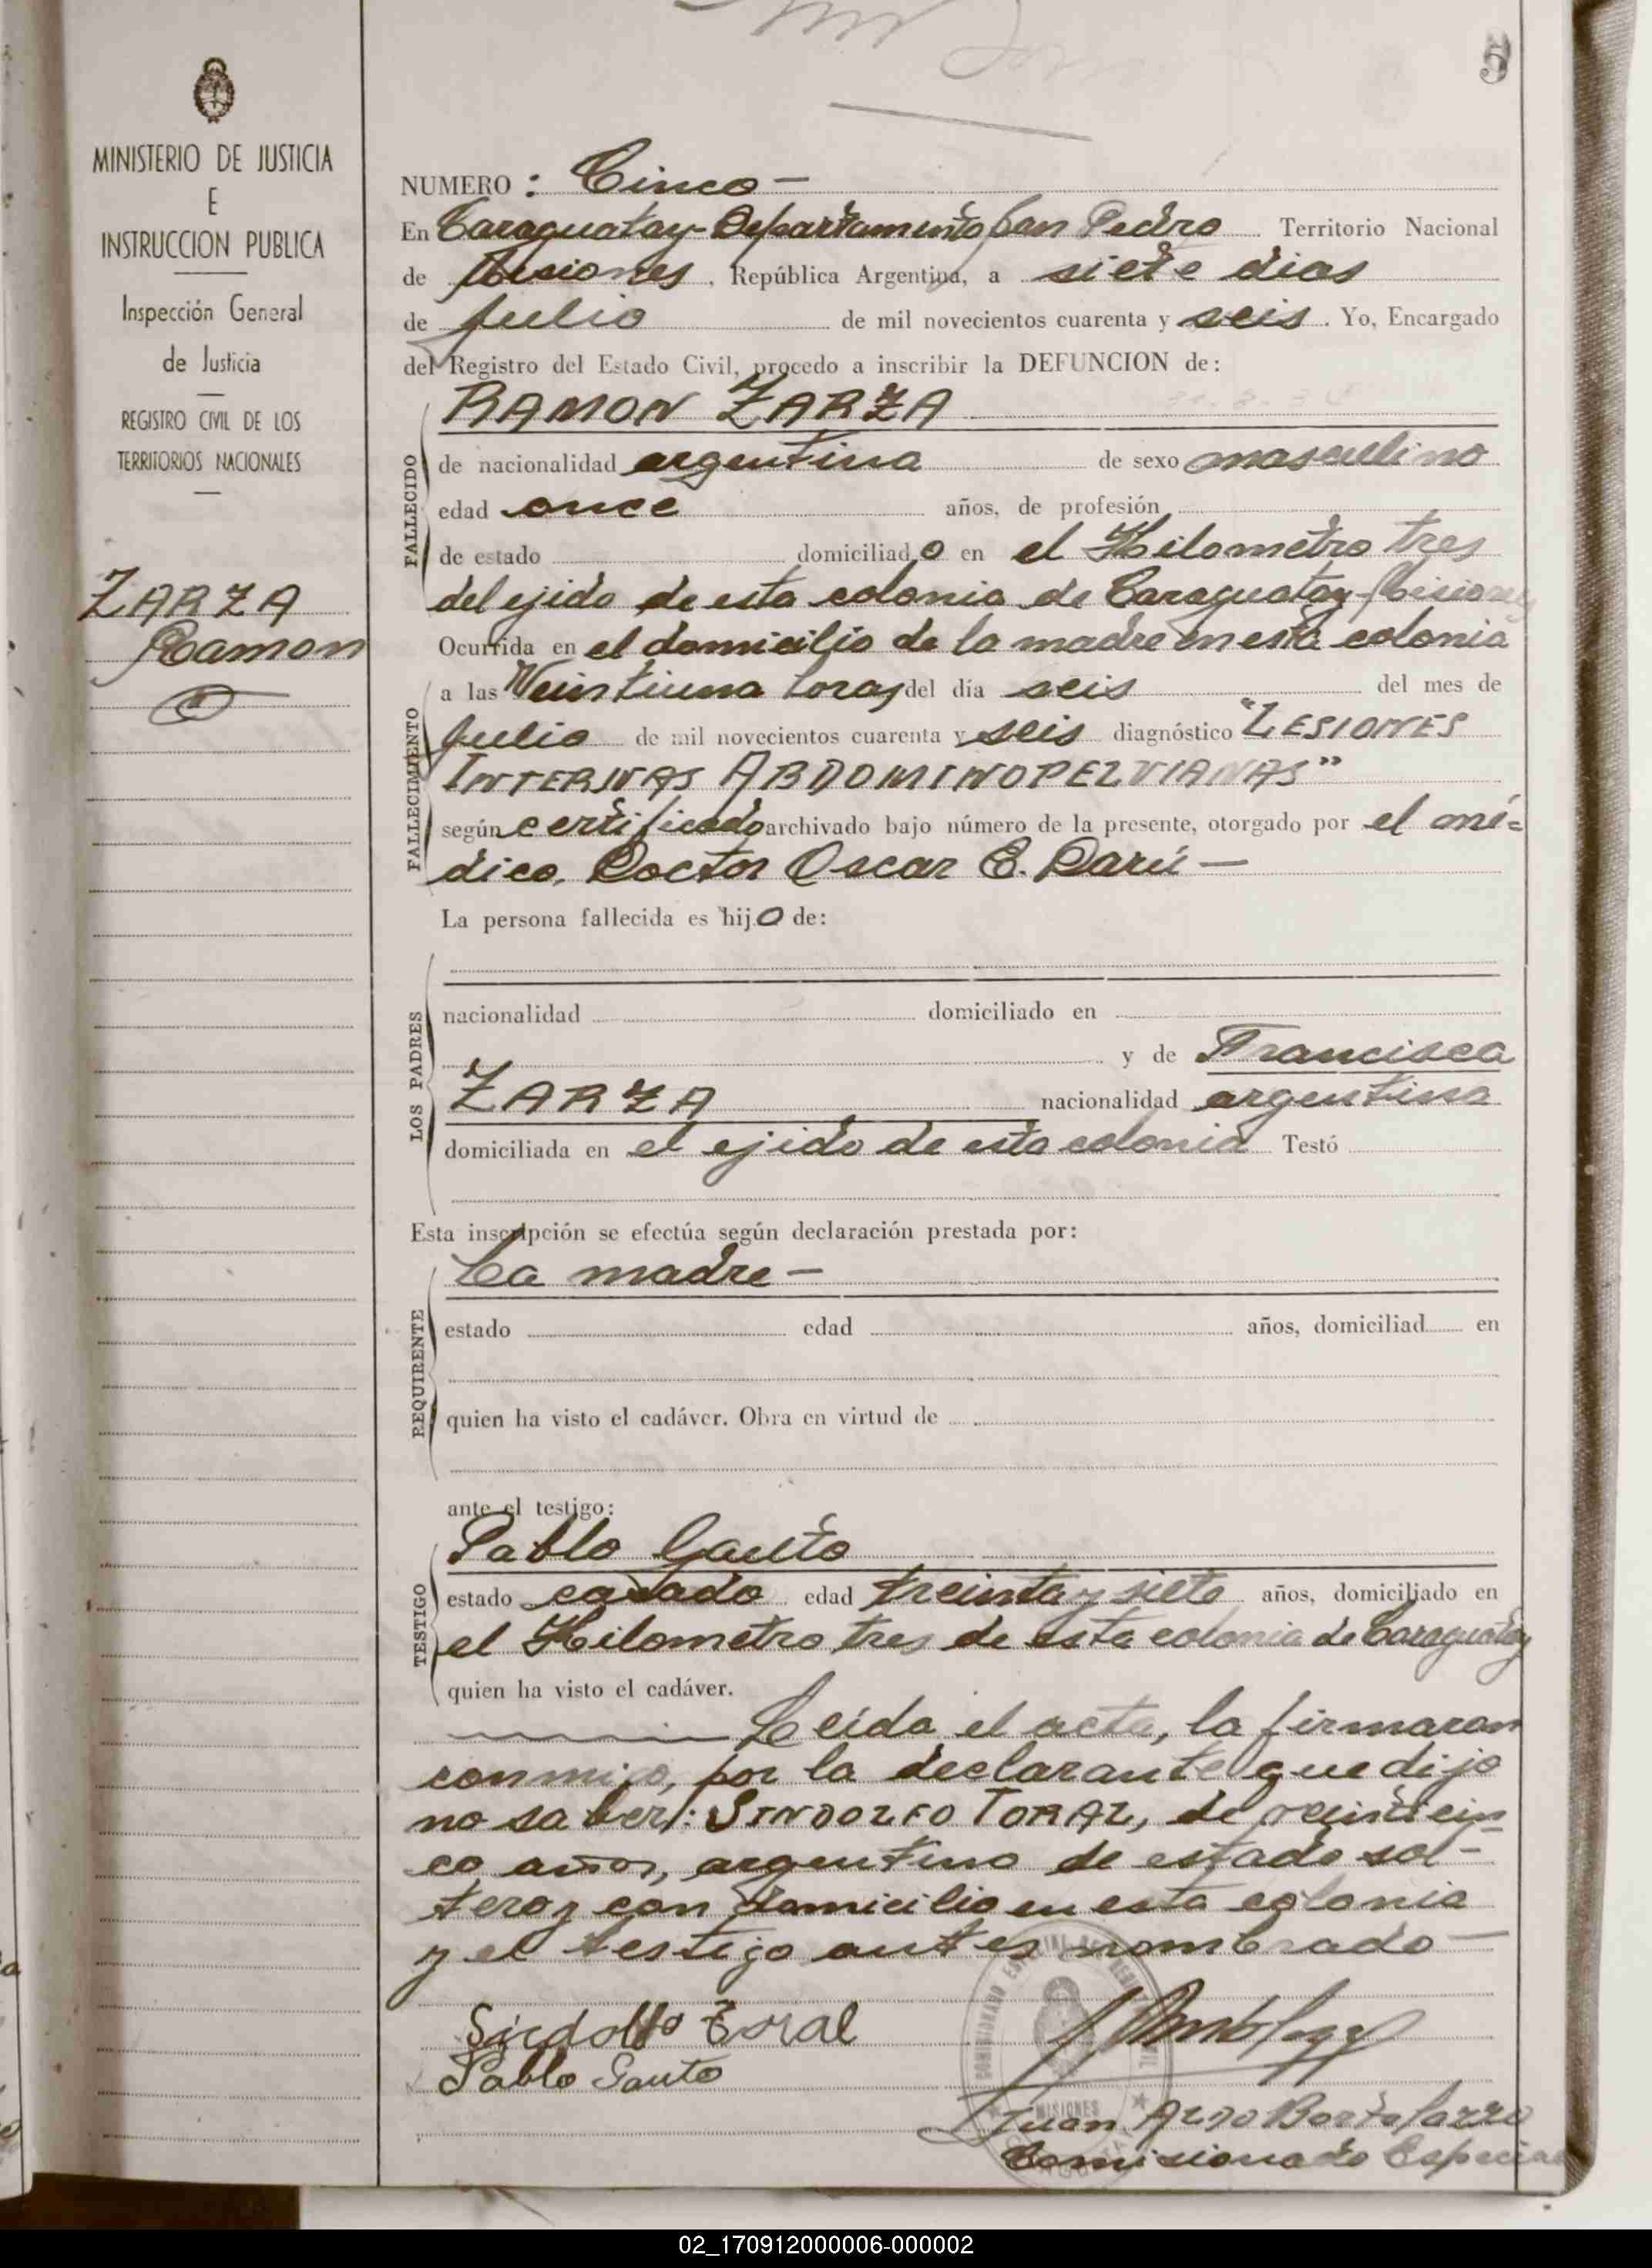 5
MINISTERIO DE JUSTICIA
E
INSTRUCCION PUBLICA
Inspección General
de Justicia
REGISTRO CIVIL DE LOS
TERRITORIOS NACIONALES
ZARZA
Ramon
NUMERO: Cinco-
En Caraguatay-Departamento San Pedro Territorio Nacional
de Misiones, República Argentina, a siete dias
de Julio de mil novecientos cuarenta y seis. Yo, Encargado
del Registro del Estado Civil, procedo a inscribir la DEFUNCION de:
RAMON ZARZA
FALLECIDO
de nacionalidad argentina de sexo masculino
edad once años, de profesión
de estado domiciliado en el Kilometro tres
del ejido de esta colonia de Caraguatay-Misiones
Ocurrida en el domicilio de la madre en esta colonia
FALLECIMIENTO
a las Veintiuna horas del día seis del mes de
Julio de mil novecientos cuarenta y seis diagnóstico "LESIONES
INTERNAS ABDOMINOPELVIANAS"
según certificado archivado bajo número de la presente, otorgado por el mé=
dico, Doctor Oscar E. Darú-
La persona fallecida es hijo de:
LOS PADRES
nacionalidad domiciliado en
y de Francisca
ZARZA nacionalidad argentina
domiciliada en el ejido de esta colonia Testó
Esta inscripción se efectúa según declaración prestada por:
La madre-
REQUIRENTE
estado edad años, domiciliad en
quien ha visto el cadáver. Obra en virtud de
ante el testigo:
Pablo Gauto
TESTIGO
estado casado edad treinta y siete años, domiciliado en
el Kilometro tres de esta colonia de Caraguatay
quien ha visto el cadáver.
Leída el acta, la firmaron
conmigo, por la declarante que dijo
no saber: SINDOLFO TORAL, de veinticin=
co años, argentino de estado sol-
tero y con domicilio en esta colonia
y el testigo antes nombrado-
Sindolfo Toral
Pablo Gauto
MISIONES
Juan Aldo
Comisionado Especial
02_170912000006-000002